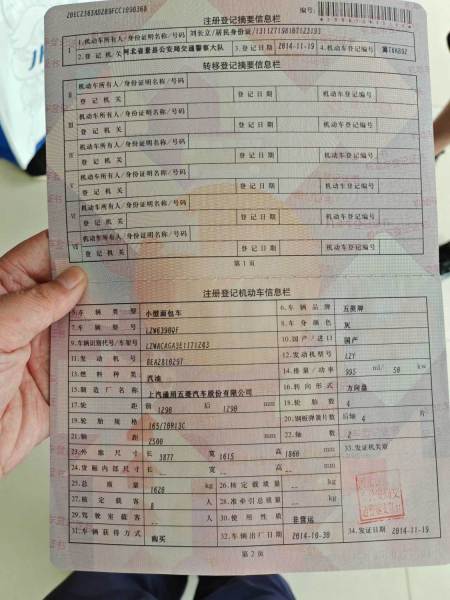 编号:
注册登记摘要信息栏
Ⅰ 1.机动车所有人/身份证明名称/号码 刘长立/居民身份证/
2.登记机关 河北省景县公安局交通警察大队 3.登记日期 2014-11-19 4.机动车登记编号
转移登记摘要信息栏
Ⅱ 机动车所有人/身份证明名称/号码
登记机关 登记日期 机动车登记编号
Ⅲ 机动车所有人/身份证明名称/号码
登记机关 登记日期 机动车登记编号
Ⅳ 机动车所有人/身份证明名称/号码
登记机关 登记日期 机动车登记编号
Ⅴ 机动车所有人/身份证明名称/号码
登记机关 登记日期 机动车登记编号
Ⅵ 机动车所有人/身份证明名称/号码
登记机关 登记日期 机动车登记编号
Ⅶ 机动车所有人/身份证明名称/号码
登记机关 登记日期 机动车登记编号
第1页
注册登记机动车信息栏
5.车辆类型 小型面包车 6.车辆品牌 五菱牌
7.车辆型号 LZW6390QF 8.车身颜色 灰
9.车辆识别代号/车架号 10.国产/进口 国产
11.发动机号 12.发动机型号 LZY
13.燃料种类 汽油 14.排量/功率 995 ml/ 50 kw
15.制造厂名称 上汽通用五菱汽车股份有限公司 16.转向形式 方向盘
17.轮距 前 1290 后 1290 mm 18.轮胎数 4
19.轮胎规格 165/70R13C 20.钢板弹簧片数 后轴 4 片
21.轴距 2500 mm 22.轴数 2
23.外廓尺寸 长 3877 宽 1615 高 1860 mm 33.发证机关章
24.货厢内部尺寸 长 -- 宽 -- 高 -- mm
25.总质量 1620 kg 26.核定载质量 -- kg
27.核定载客 8 人 28.准牵引总质量 -- kg
29.驾驶室载客 -- 人 30.使用性质 非营运
31.车辆获得方式 购买 32.车辆出厂日期 2014-10-30 34.发证日期 2014-11-19
第2页